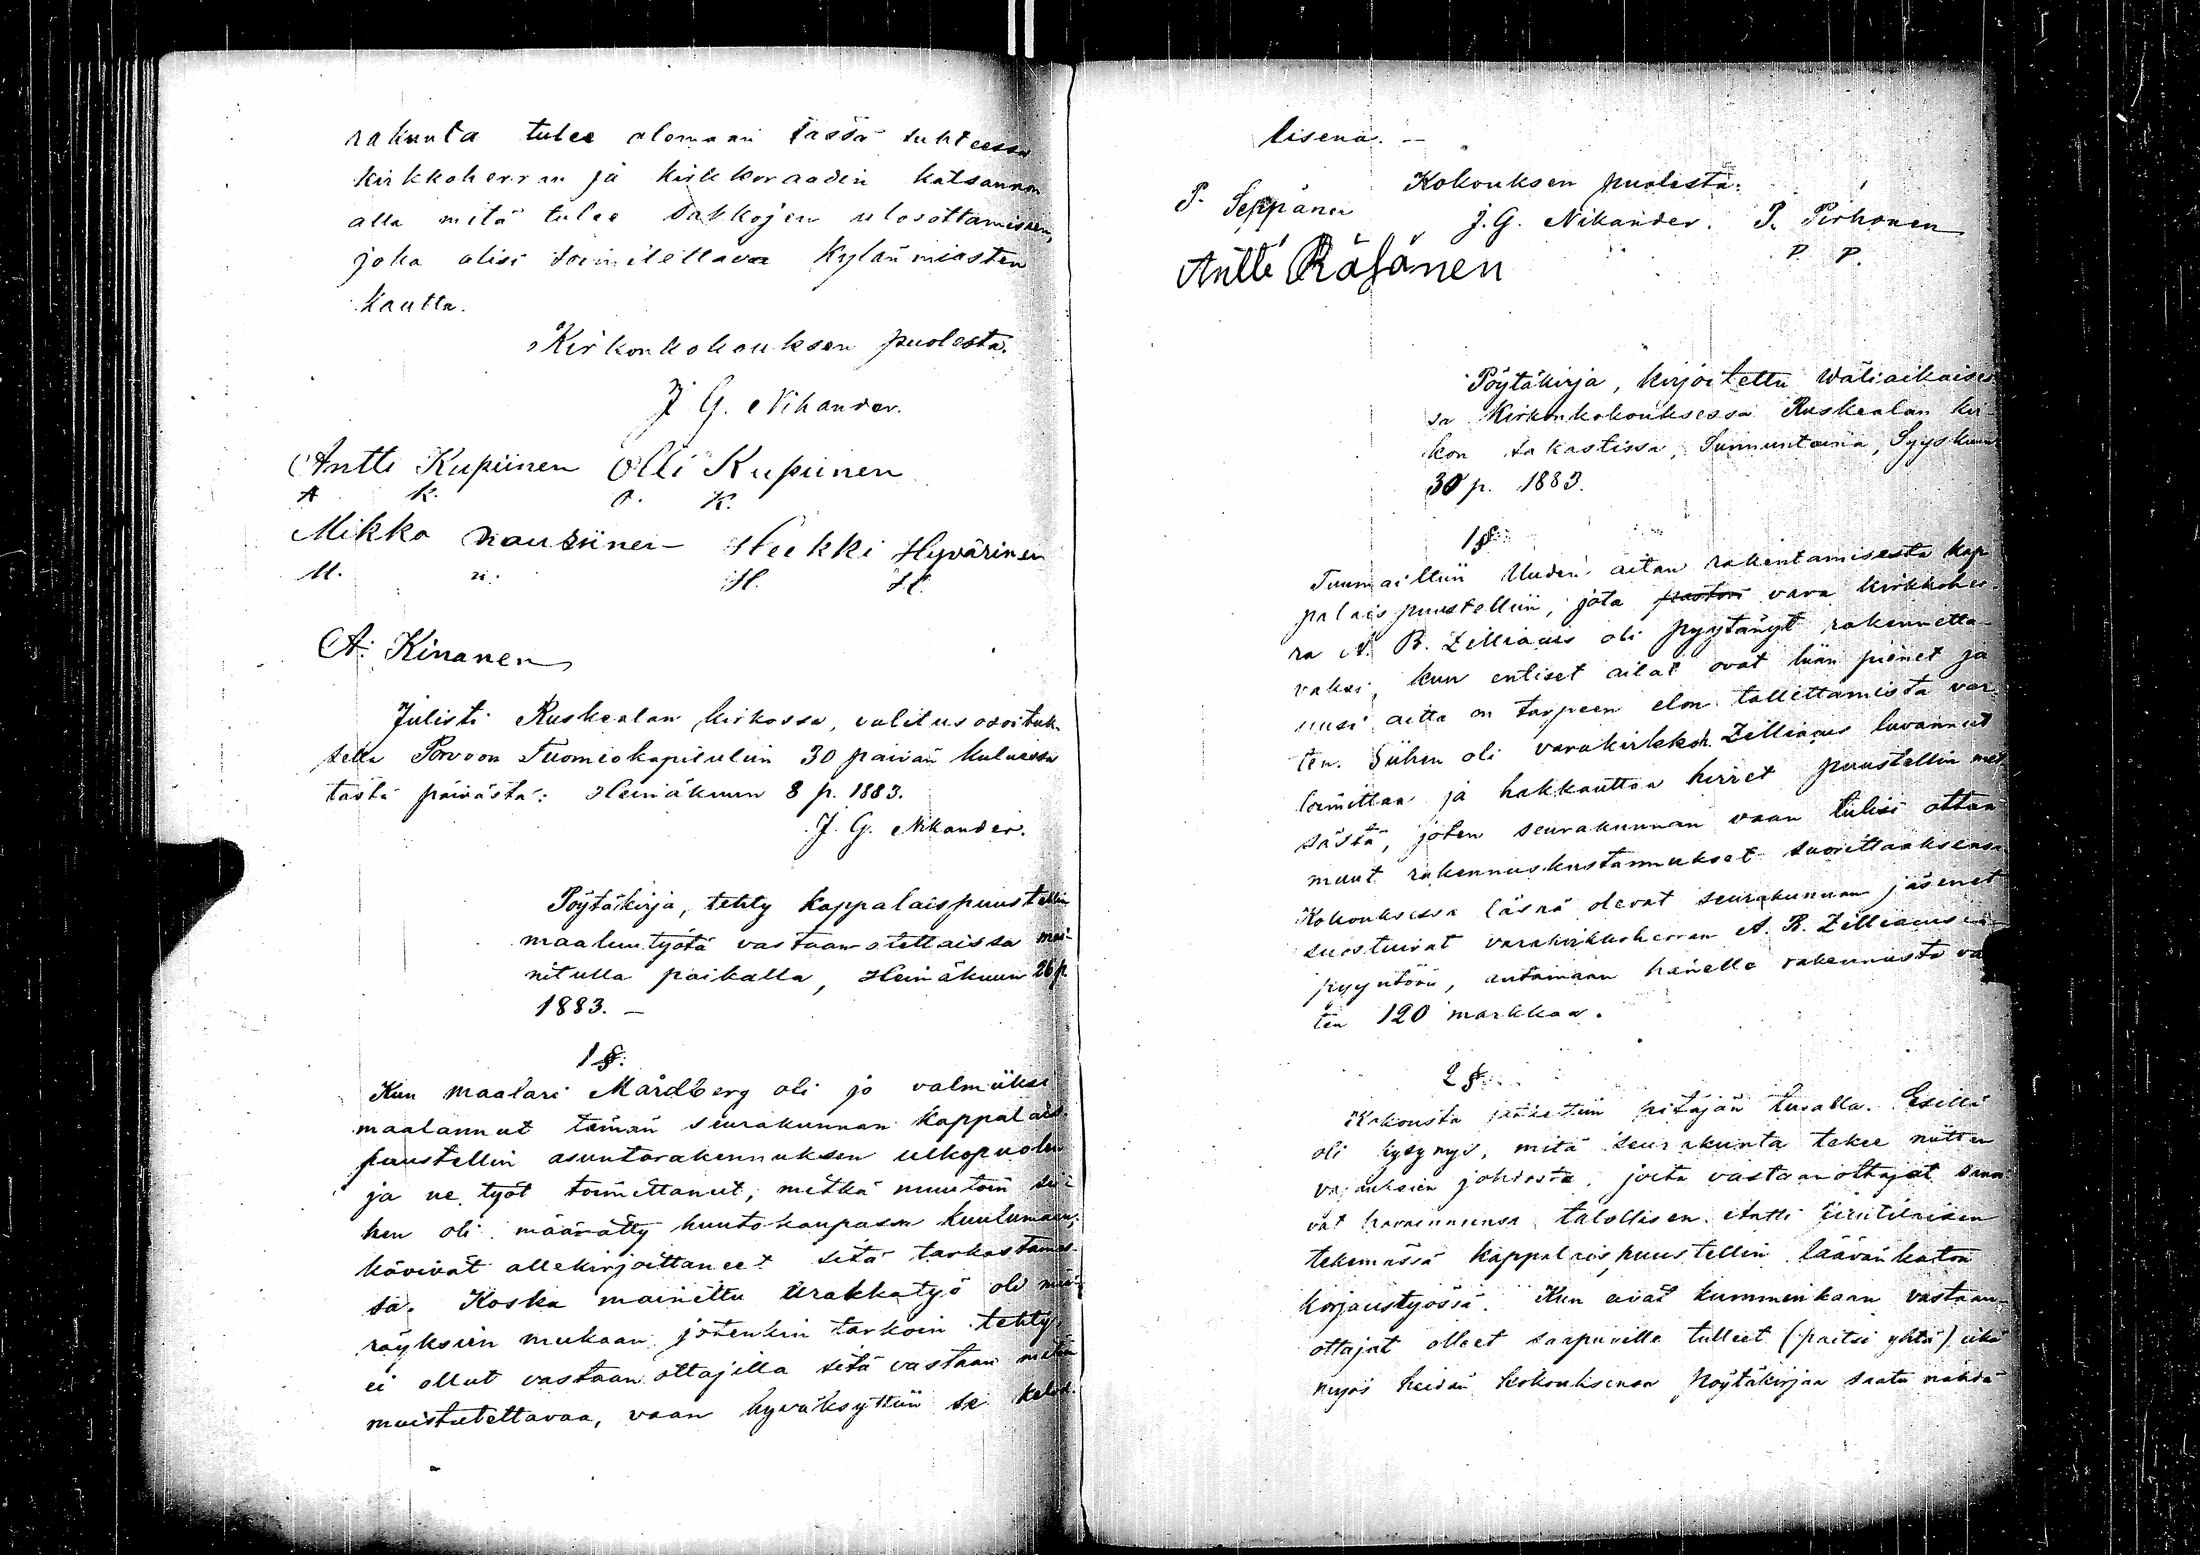 rakunta tulee olemaan tässä suhteessa
kirkkoherran ja kirkkoraadin katsannon
alla mitä tulee sakkojen ulosottamiseen,
joka olisi toimitettava kylänmiesten
kautta.
Kirkonkokouksen puolesta.
J G. Nikander.
Antti Kupiinen Olli Kupiinen
A K. O. K.
Mikko Nousiinen Heikki Hyvärinen
M. N. H. H.
A. Kinanen
Julisti Ruskealan kirkossa, valitusosoituk-
sella Porvoon Tuomiokapituliin 30 päivän kuluessa
tästä päivästä: Heinäkuun 8 p. 1883.
J. G. Nikander.
Pöytäkirja, tehty kappalaispuustellin
maaluutyötä vastaan otettaissa mai-
nitulla paikalla, Heinäkuun 26 p.
1883. —
1 §.
Kun maalari Mårdberg oli jo valmiiksi
maalannut tämän seurakunnan kappalais-
puustellin asuntorakennuksen ulkopuolen
ja ne työt toimittanut, mitkä muutoin sii-
hen oli määrätty huutokaupassa kuulumaan;
kävivät allekirjoittaneet sitä tarkastamas-
sa. Koska mainittu urakkatyö oli mää-
räyksien mukaan jotenkin tarkoin tehty
ei ollut vastaan ottajilla sitä vastaan mitään
muistutettavaa, vaan hyväksyttiin se kelvol-
lisena. —
Kokouksen puolesta:
P. Seppänen J. G. Nikander. P. Pirhonen
P. P.
Antti Räsänen
Pöytäkirja, kirjoitettu väliaikaises-
sa Kirkonkokouksessa Ruskealan kir-
kon sakastissa, Sunnuntaina, Syyskuun
30 p. 1883.
1 §.
Tuumailtiin Uuden aitan rakentamisesta kap-
palaispuustelliin, jota pastori vara kirkkoher-
ra A. B. Zilliacus oli pyytänyt rakennetta-
vaksi, kun entiset aitat ovat liian pienet ja
uusi aitta on tarpeen elon tallettamista var-
ten. Siihen oli varakirkkoh. Zilliacus luvannut
toimittaa ja hakkauttaa hirret puustellin met-
sästä, joten seurakunnan vaan tulisi ottaa
muut rakennuskustannukset suorittaaksensa
Kokouksessa läsnä olevat seurakunnan jäsenet
suostuivat varakirkkoherran A. B. Zilliacuksen
pyyntöön, antamaan hänelle rakennusta var
ten 120 markkaa.
2 §.
Kokousta pitäjän tuvalla. Esillä
oli kysymys, mitä seurakunta tekee niitten
vajauksien johdosta, joita vastaanottajat sanoi-
vat havainneensa talollisen Antti
tekemässä kappalaispuustellin läävän katon
korjaustyössä. Kun eivät kummenkaan vastaan-
ottajat olleet saapuville tulleet (paitsi yhtä) eikä
myös heidän kokouksensa pöytäkirjaa saatu nähdä